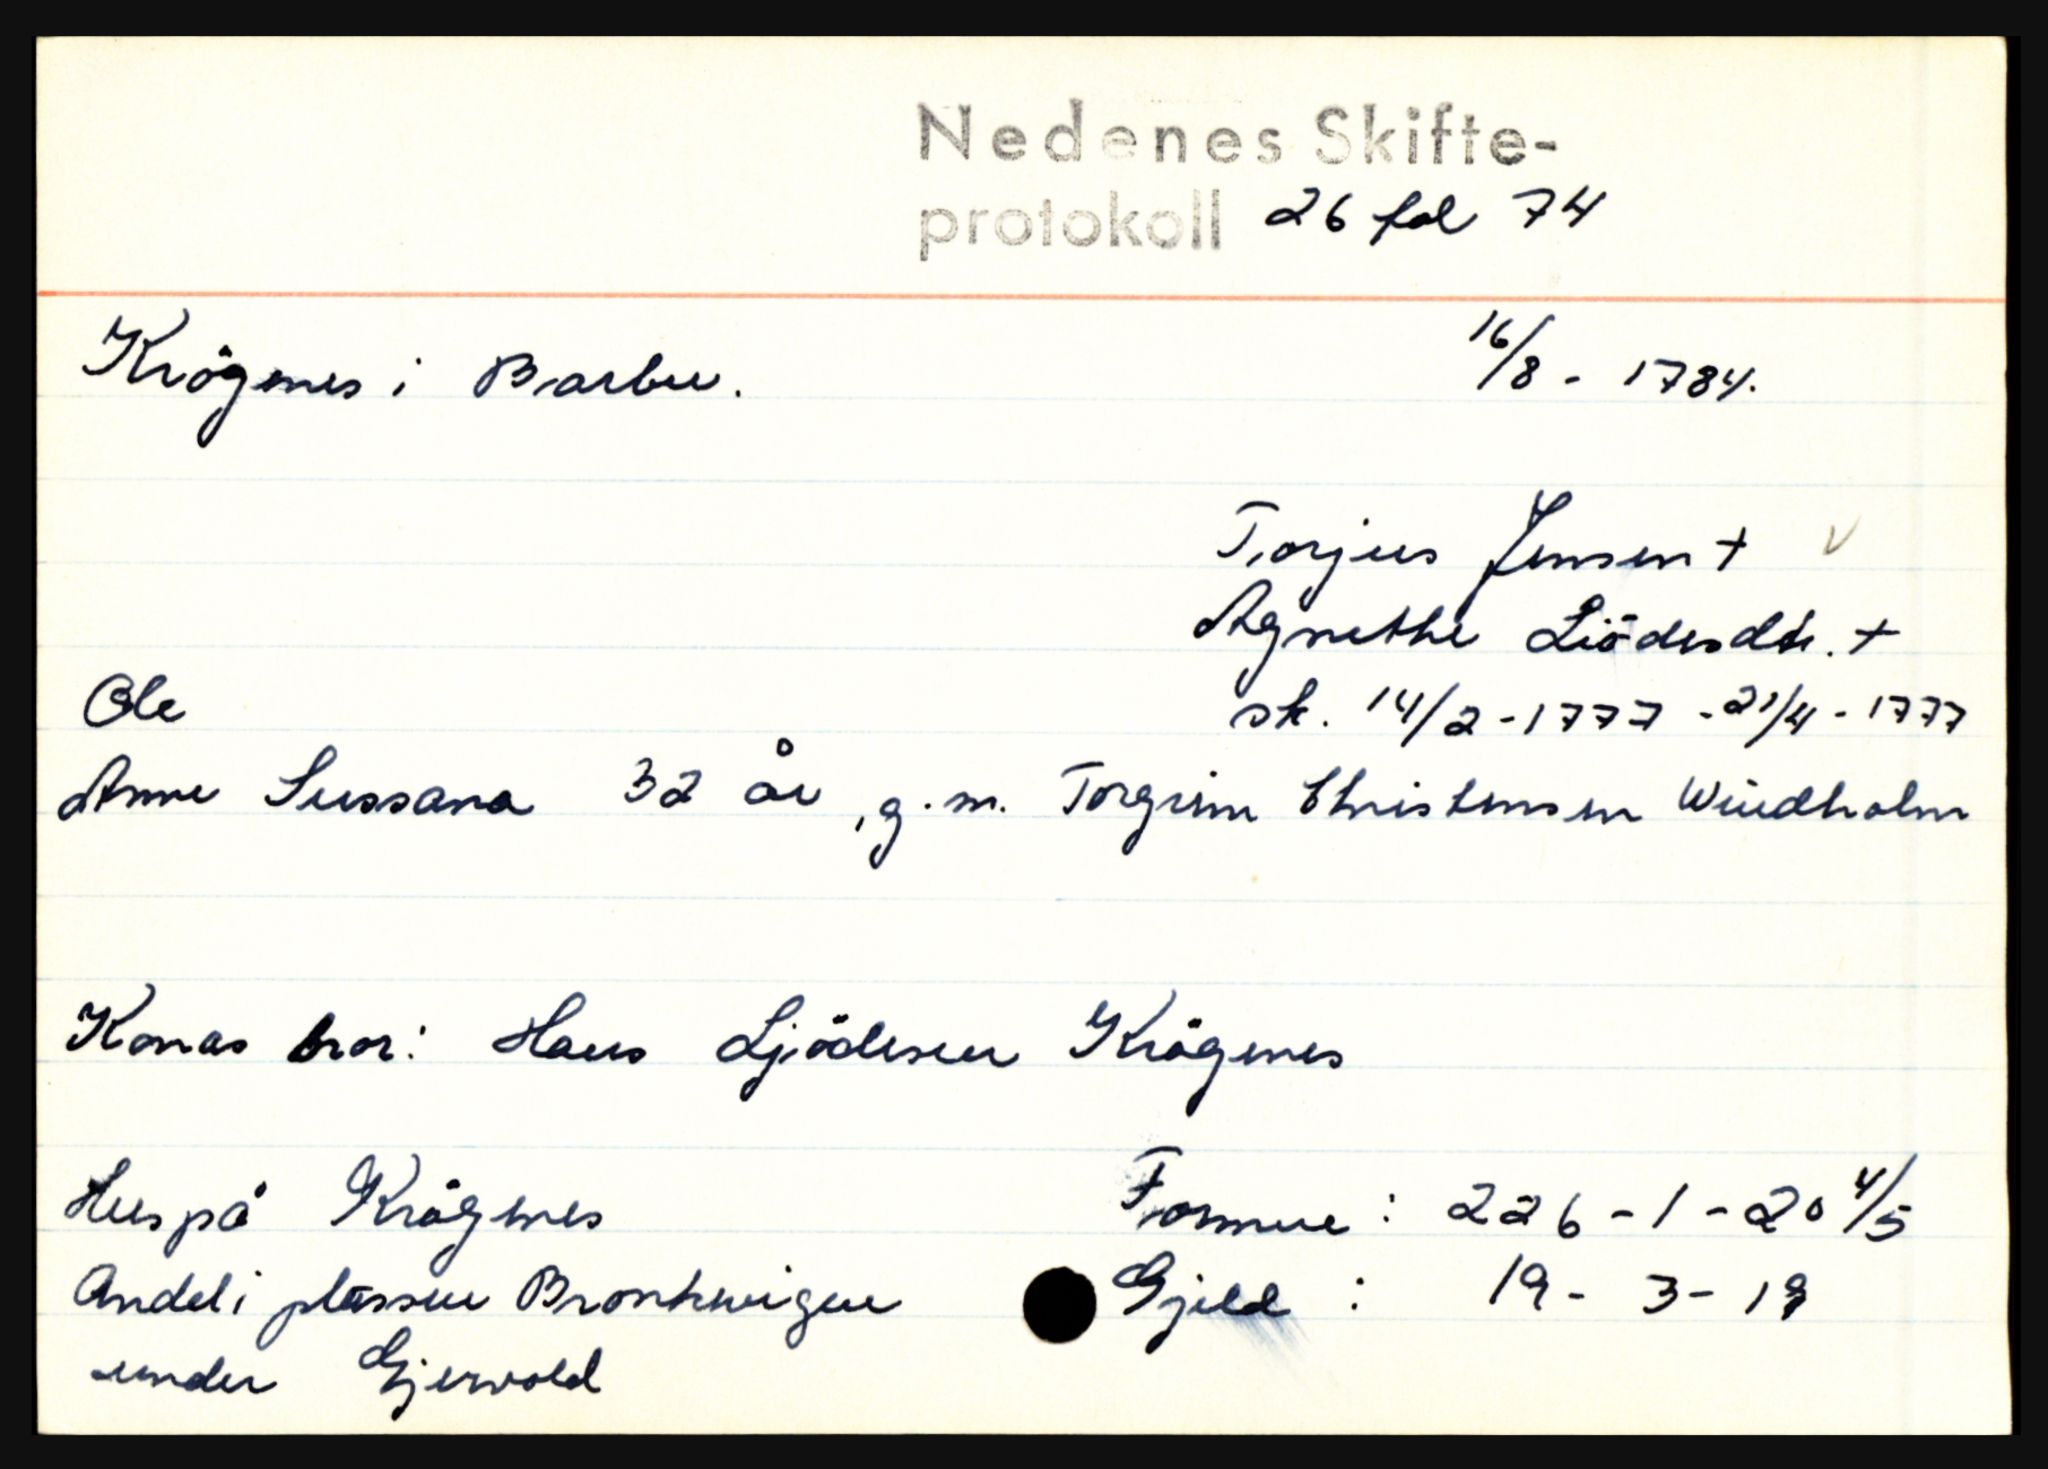 Nedenes Skifte-
protokoll 26 fol 74
Krögenes i Barbu. 16/8 - 1784.
Torjus Jensen +
Agnethe Liödesdtr. +
Ole sk. 14/2-1777 - 21/4 - 1777
Anne Sussana 32 år, g.m. Torgrim Christensen Windholm
Konas bror: Hans Ljödesen Krögenes
Hus på Krögenes Formue : 226 - 1 - 20 4/5
Andel i plassen Gjeld : 19 - 3 - 19
under Gjervold